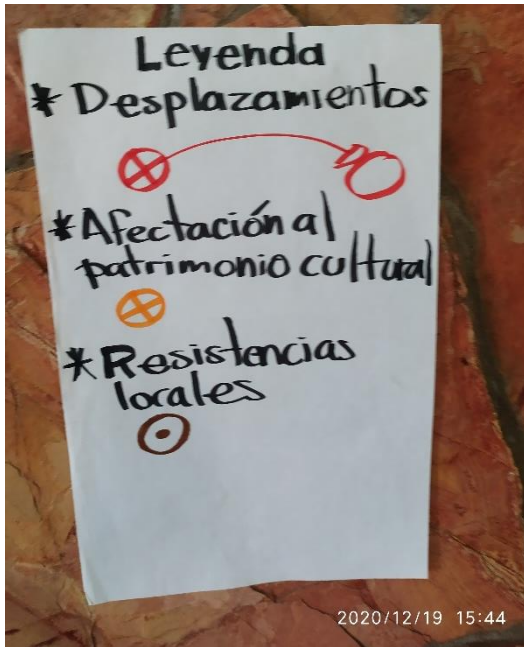 Leyenda
* Desplazamientos
* Afectación al
patrimonio cultural
* Resistencias
locales
2020/12/19 15:44